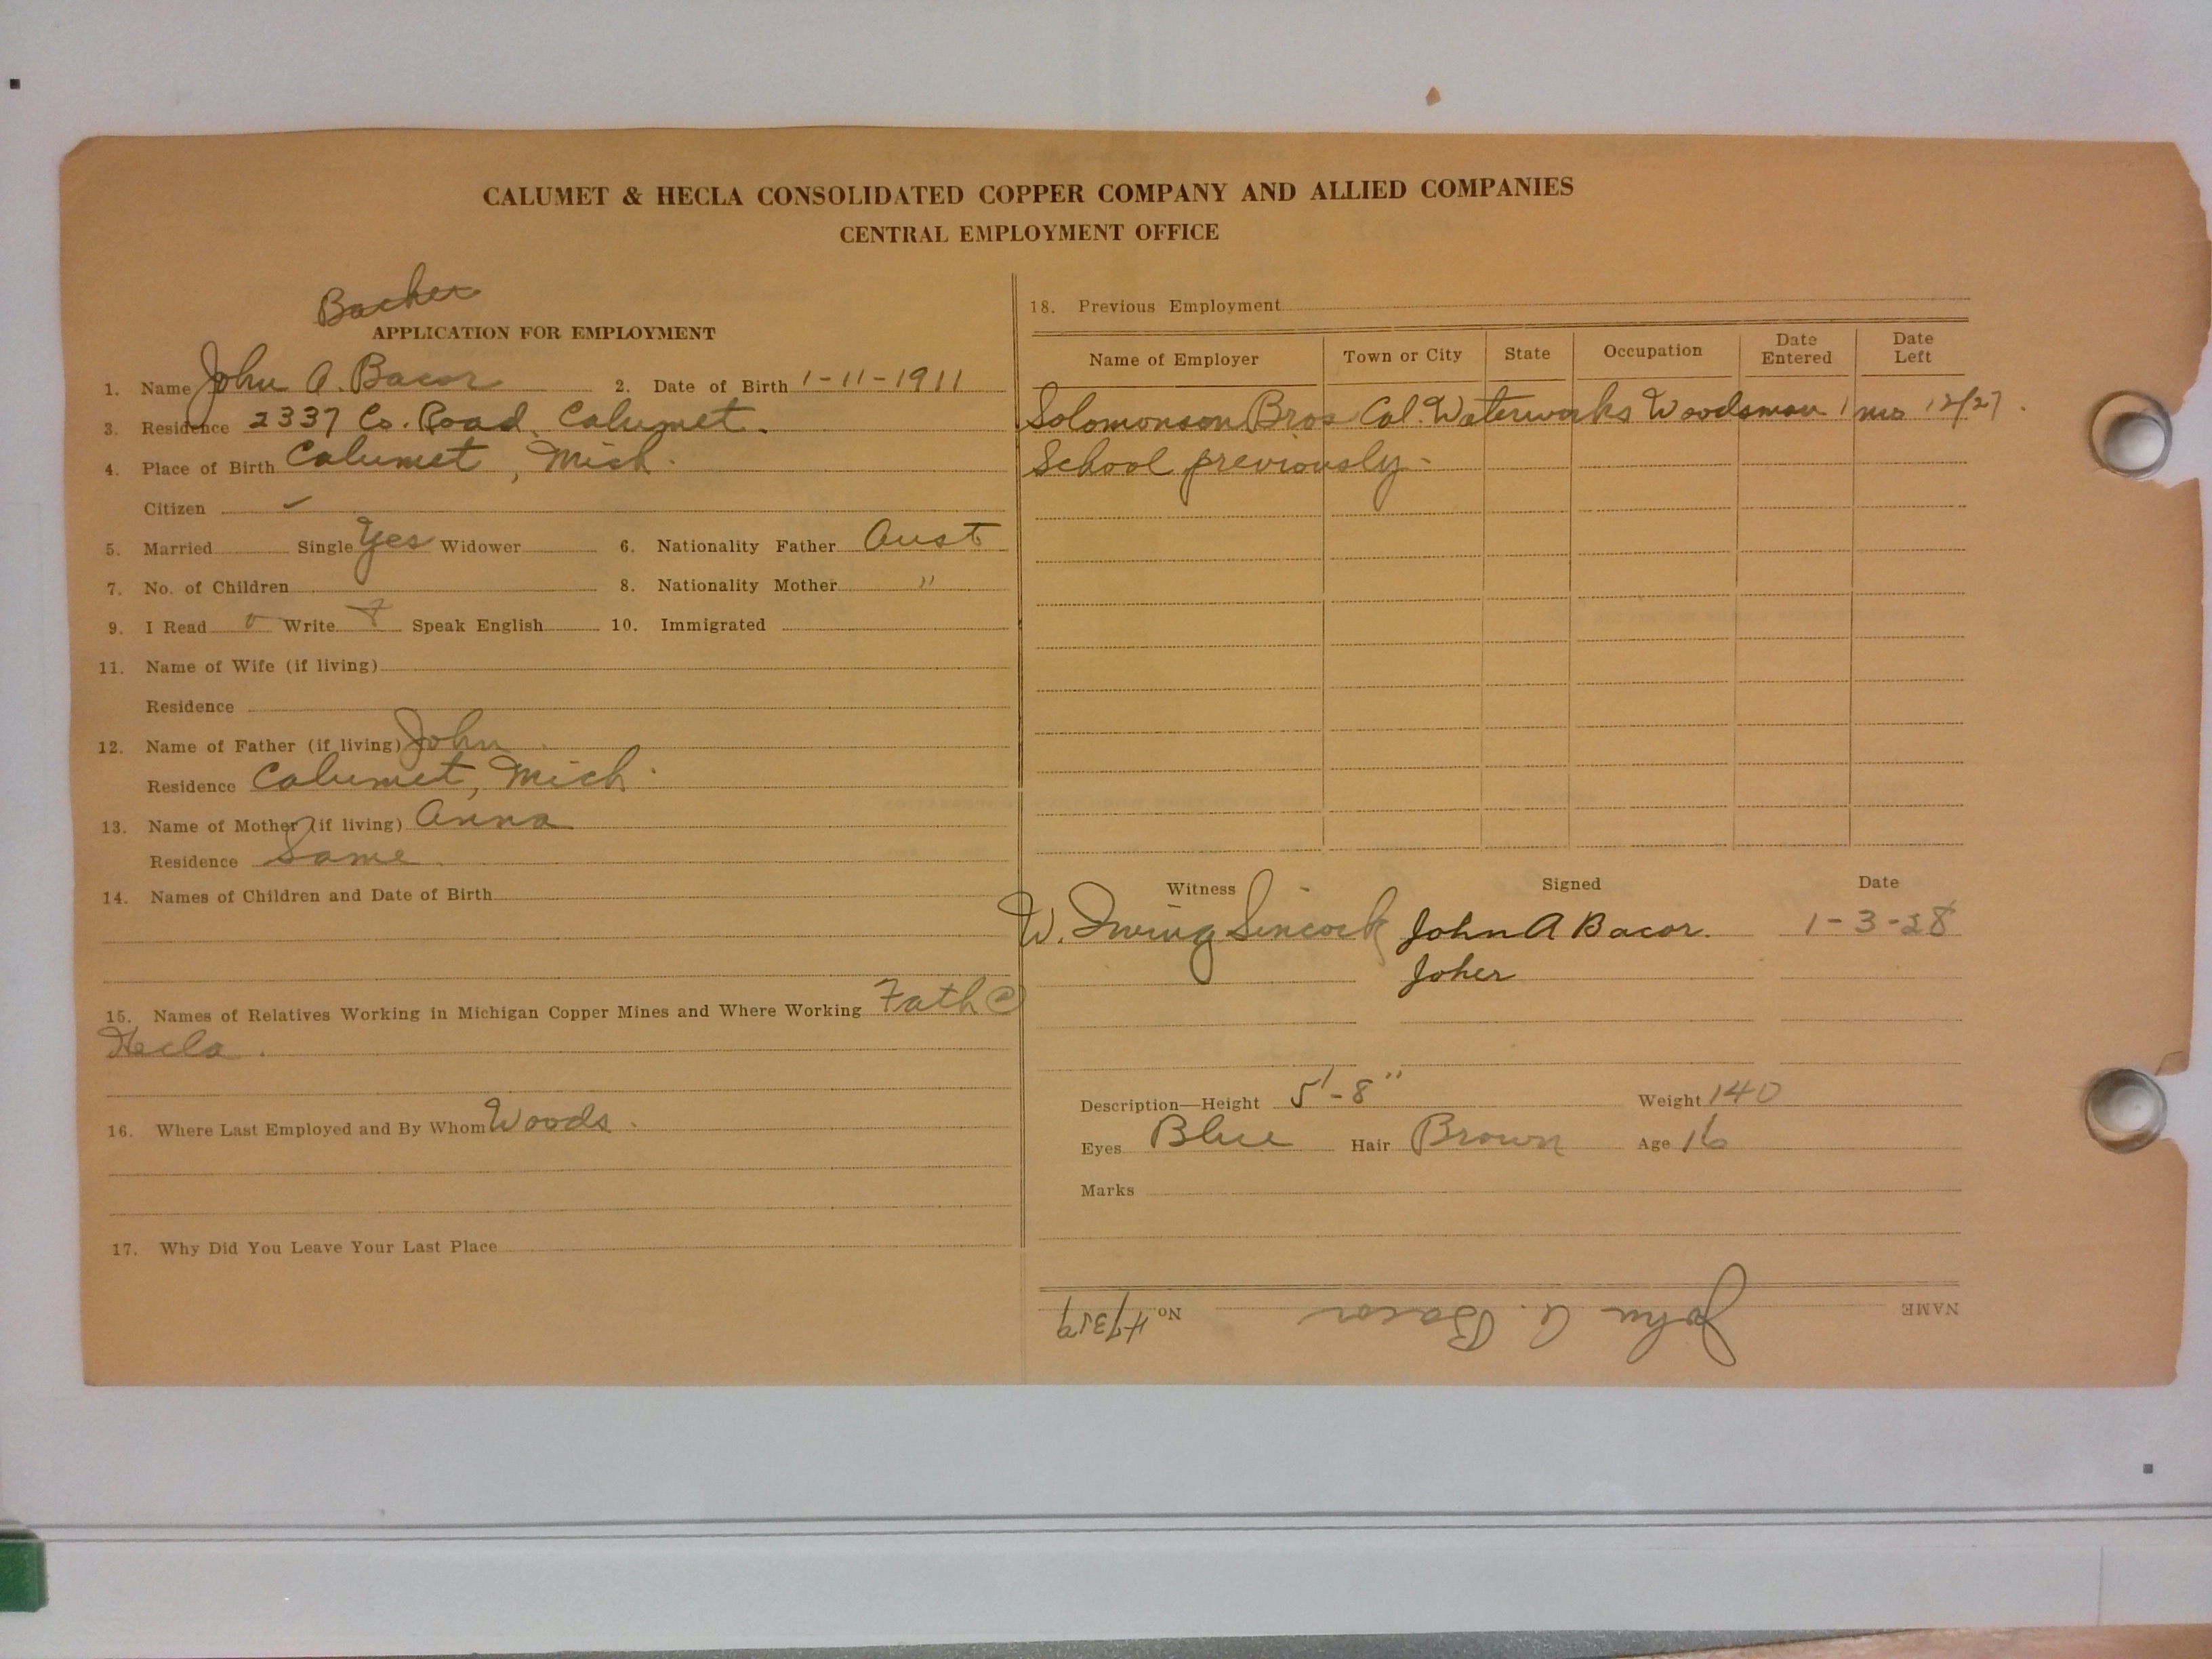 CALUMET & HECLA CONSOLIDATED COPPER COMPANY AND ALLIED COMPANIES
CENTRAL EMPLOYMENT OFFICE
Bacher
APPLICATION FOR EMPLOYMENT
1. Name John A. Bacor 2. Date of Birth 1-11-1911
3. Residence 2337 Co. Road, Calumet.
4. Place of Birth Calumet, Mich.
Citizen ✓
5. Married Single Yes Widower 6. Nationality Father Aust
7. No. of Children 8. Nationality Mother "
9. I Read Write Speak English 10. Immigrated
11. Name of Wife (if living)
Residence
12. Name of Father (if living) John
Residence Calumet, Mich.
13. Name of Mother (if living) Anna
Residence Same
14. Names of Children and Date of Birth
15. Names of Relatives Working in Michigan Copper Mines and Where Working Fath @
Hecla.
16. Where Last Employed and By Whom Woods.
17. Why Did You Leave Your Last Place
18. Previous Employment
Name of Employer Town or City State Occupation Date Entered Date Left
Solomonson Bros Cal. Waterworks Woodsman 1 mo 12/27.
School previously-
Witness Signed Date
W. Irving Sincock John A Bacor. 1-3-28
Joher
Description—Height 5'-8" Weight 140
Eyes Blue Hair Brown Age 16
Marks
NAME John A. Bacor No. 47359